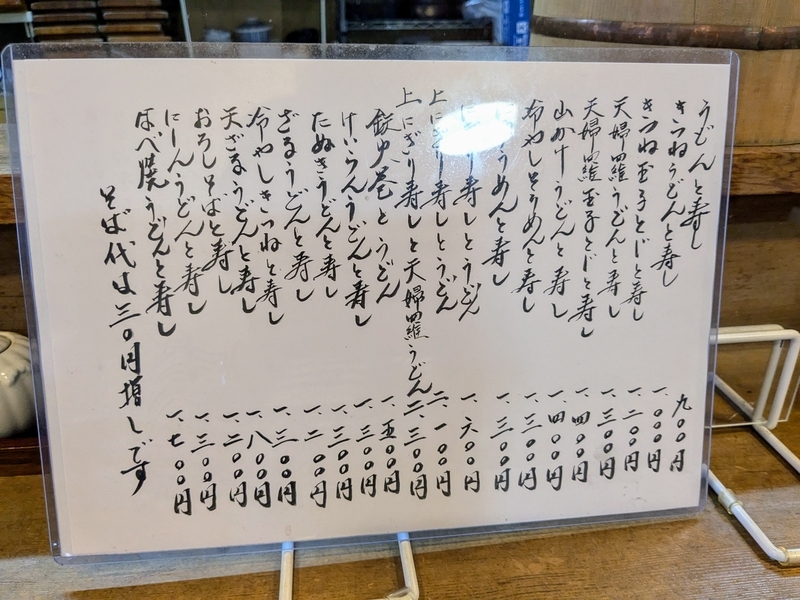 うどんと寿し 九〇〇円
きつねうどんと寿し 一、〇〇〇円
きつね玉子とじと寿し 一、二〇〇円
天婦羅うどんと寿し 一、三〇〇円
天婦羅玉子とじと寿し 一、四〇〇円
山かけうどんと寿し 一、四〇〇円
冷やしそうめんと寿し 一、三〇〇円
にうめんと寿し 一、三〇〇円
にぎり寿しとうどん 一、六〇〇円
上にぎり寿しとうどん 二、一〇〇円
上にぎり寿しと天婦羅うどん 二、三〇〇円
鉄火巻とうどん 一、五〇〇円
けいらんうどんと寿し 一、三〇〇円
たぬきうどんと寿し 一、三〇〇円
ざるうどんと寿し 一、二〇〇円
冷やしきつねと寿し 一、三〇〇円
天ざるうどんと寿し 一、八〇〇円
おろしそばと寿し 一、二〇〇円
にしんうどんと寿し 一、三〇〇円
なべ焼うどんと寿し 一、七〇〇円
そば代は三〇円増しです